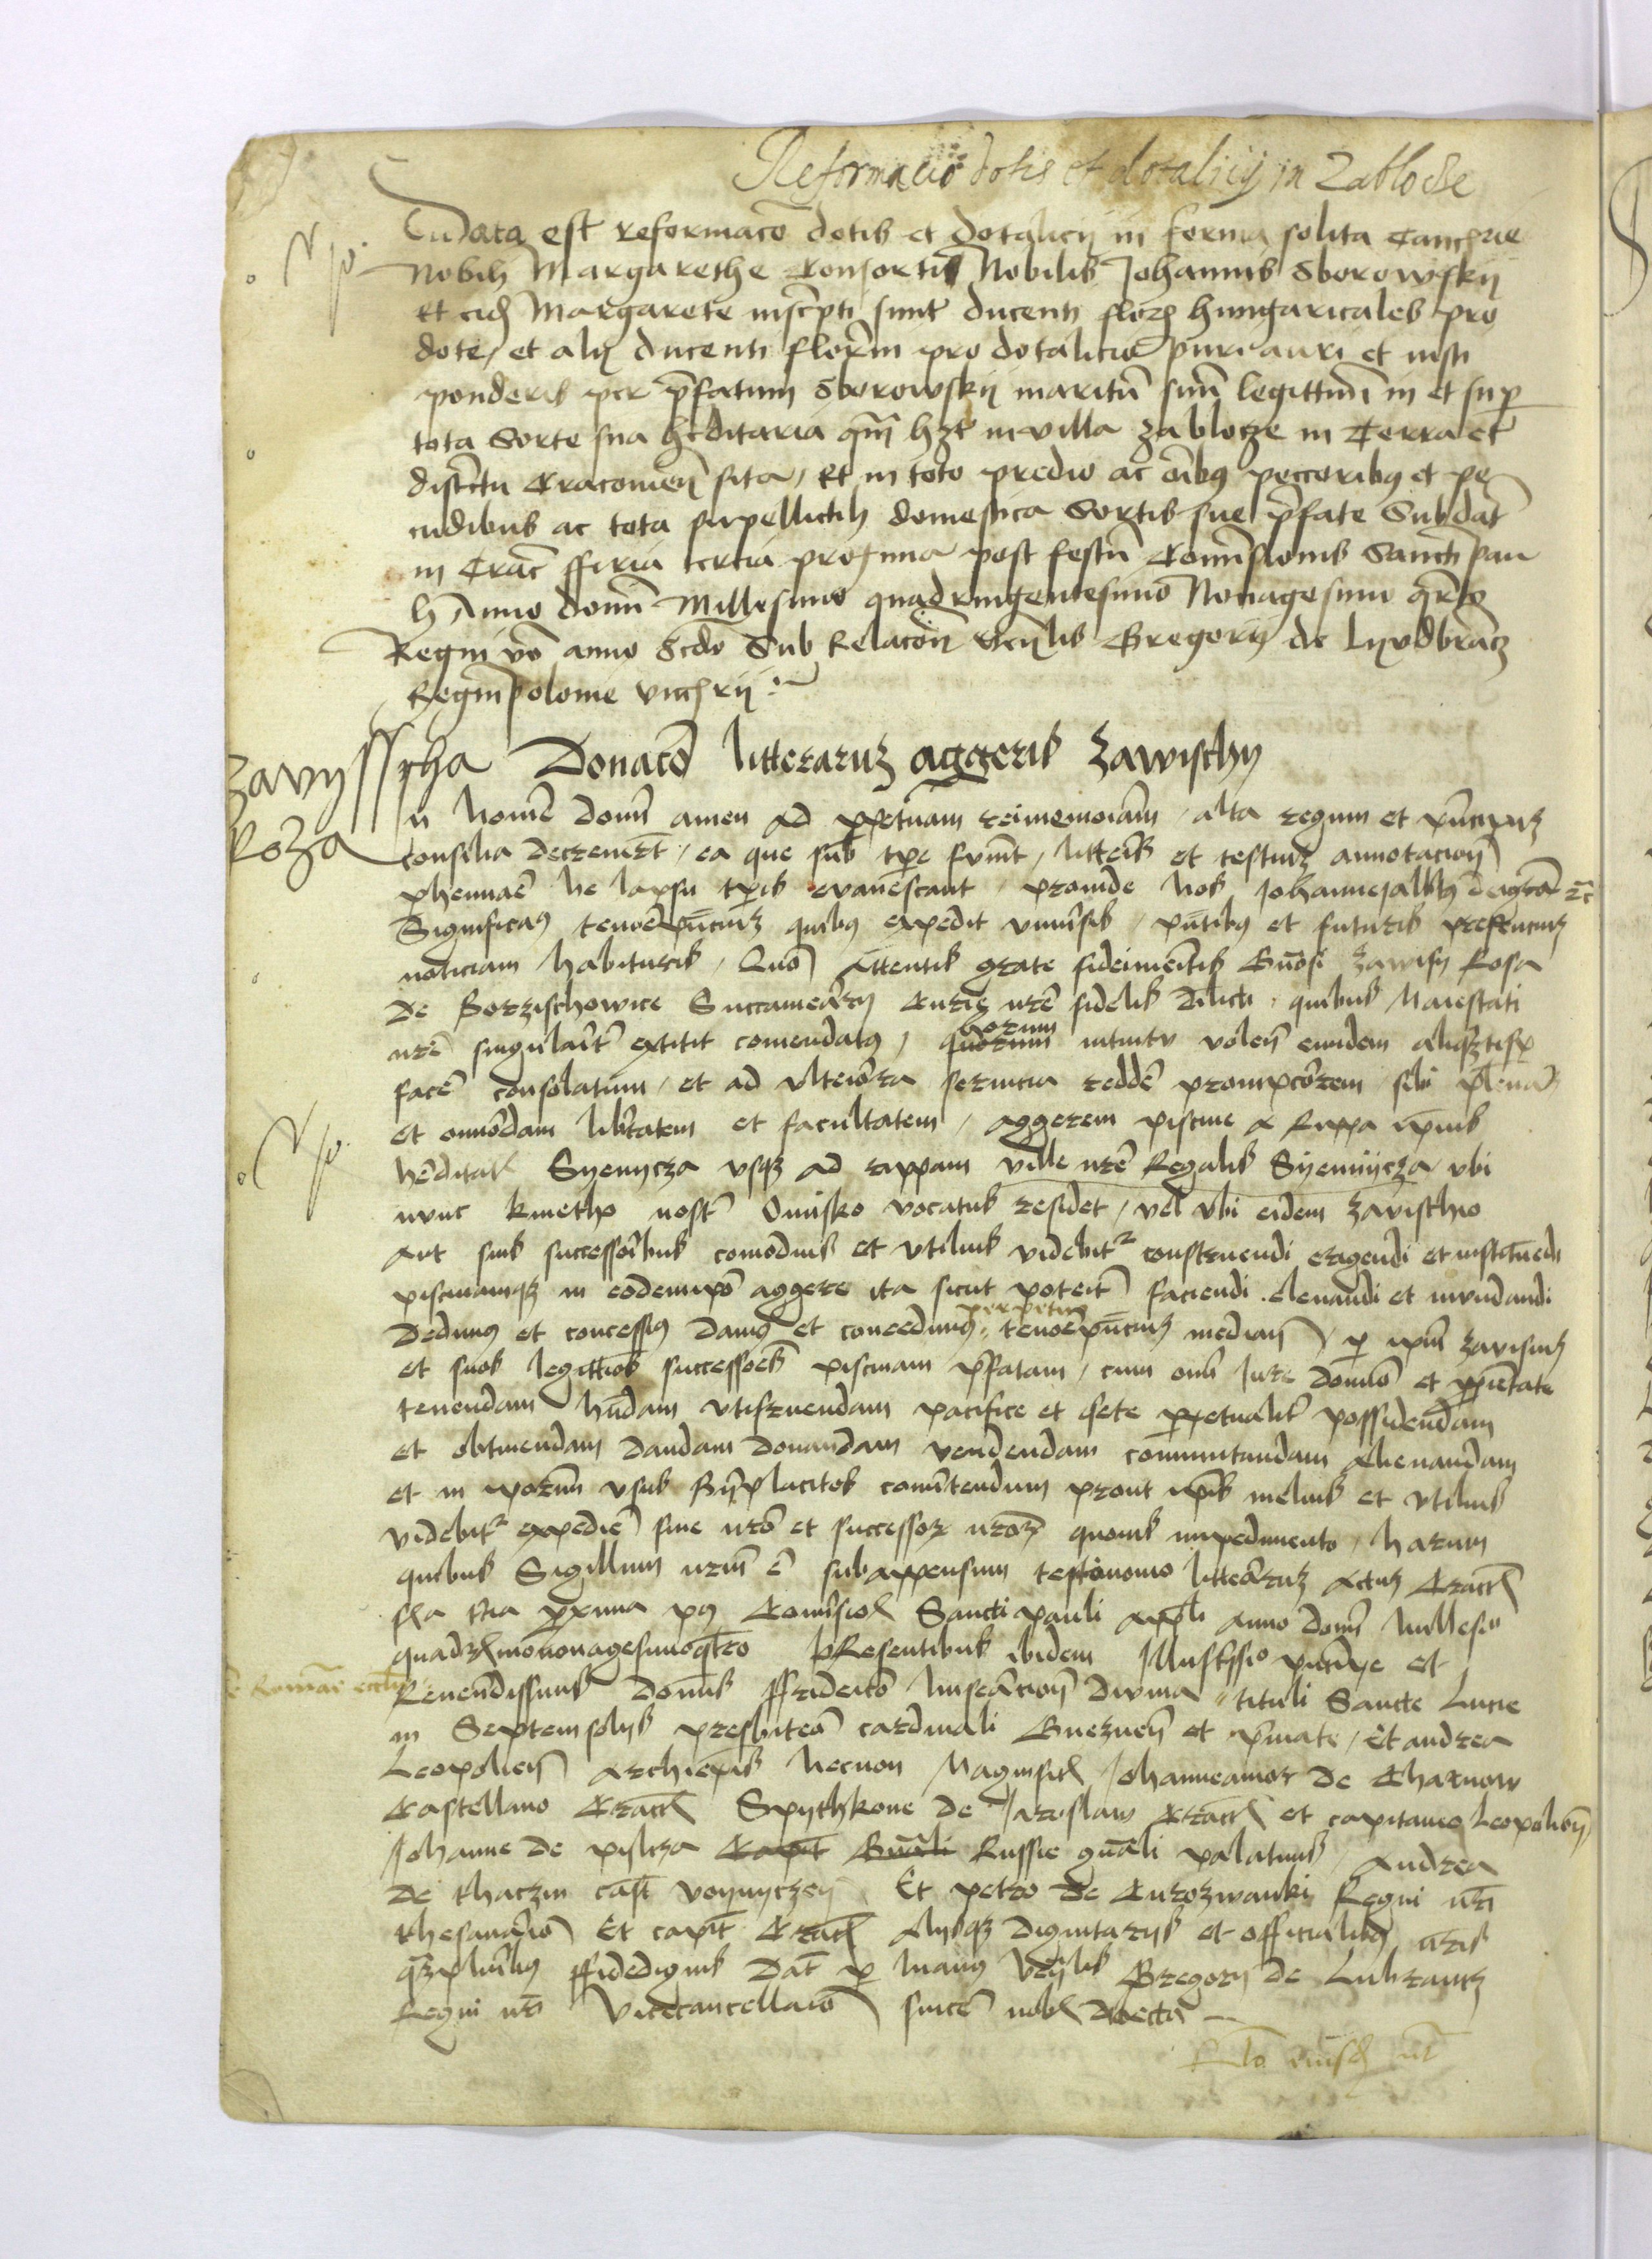 Reformacio dotis et dotalicij in Zablocze
data est reformaco dotis et dotalicij in forma solita
Nobili Margarethe Consortis Nobilis Johannis Sborowskij
Et Margarete inscripti sunt ducenti floren hungaricales pro
dote, et alij ducenti floreni pro dotalicio puri auri et iusti
ponderis per prefatum Sborowskij maritum suum legittimum in et super
tota Sorte sua hereditaria quam habet in villa Zablocze in Terra et
districtu Cracovien sita, Et in toto predio ac omnibus peccoribus et pe
cudibus ac tota suppellectili domestica Sortis sue prefate Sub dat
in Crac fferia tercia proxima post festum Conversionis Sancti Pau
li Anno domini Millesimo quadringentesimo Nonagesimo quarto
Regni vero anno secdo Sub Relacione Venlis Gregorij de
Regni polonie vice
Zavijsscha Donaco litterarum aggeris Zawischy
Roza
In Nomine domini amen Ad perpetuam rei memoriam, alta regum et principum
consilia decreverunt, ea que sub tempore fiunt, litteris et testium annotacione
phennare ne lapsu temporis evanescant, proinde Nos Johannes Albertus dei gracia etc
Significamus tenore presencium quibus expedit universis, presentibus et futuris presencium
noticiam habituris, Quomodo Attentis grate fidei meritis Generosi Zawisij Rosa
de Borzischowice Succamerarij Curie nre fidelis dilecti, quibus Maiestati
nre singulariter extitit comendatus, quorum intuitu volen eundem
orum
facere consolatum, et ad ulteriora servicia reddere prompciorem sibi plenam
et omnimodam libertatem et facultatem, aggerem piscine a Rippa ipsius
hereditatis Syenycza usque ad rippam ville nre Regalis Syenijcza, ubi
nunc kmetho noster Onisko vocatus residet, vel ubi eidem Zavischio
Aut suis successoribus comodius et utilius videbitur construendi erigendi et instituendi
piscinamque in eodem ipso aggere ita sicut poterit faciendi elevandi et inundandi
perpetuo
Dedimus et concessimus damus et concedimus tenore presencium mediante, per ipsum Zavisium
et suos legittimos successores piscinam prefatam, cum omni Jure dominio et proprietate
tenendam habendam utifruendam pacifice et quiete perpetualiter possidendam
et obtinendam dandam donandam vendendam commutandam Alienandam
et in ipsorum usus beneplacitos convertendum prout ipsis melius et utilius
videbitur expedire sine nro et successorum nrorum quovis impedimento, harum
quibus Sigillum nrum est subappensum testimonio litterarum Actum Crac
feria tercia proxima post Conversionis Sancti Pauli apostoli Anno domini Millesimo
quadringentesimo nonagesimo quarto Presentibus ibidem Illustrissimo principe et
Romane ecclie
Reverendissimis dominis ffriderico miseracione divina tituli Sancte Lucie
in Septemsolijs presbitero cardinali Gneznen et primate, Et Andrea
Leopolien Archiepis Necnon Magnificis Johanne Amor de Tharnow
Castellano Crac Spythkone de Jaroslaw Crac et capitaneo Leopolien
Johanne de pilcza Capit Gnali Russie gnali palatinis, Andrea
de thaczin cast voynyczen, Et petro de Curozwanki Regni nri
thesaurario Et capit Crac Alijsque dignitarijs et officialibus nris
quampluribus ffidedignis Dat per manus Venlis Gregorij de Lubrancz
Regni nri Vicecancellario sincere nobis dilecti